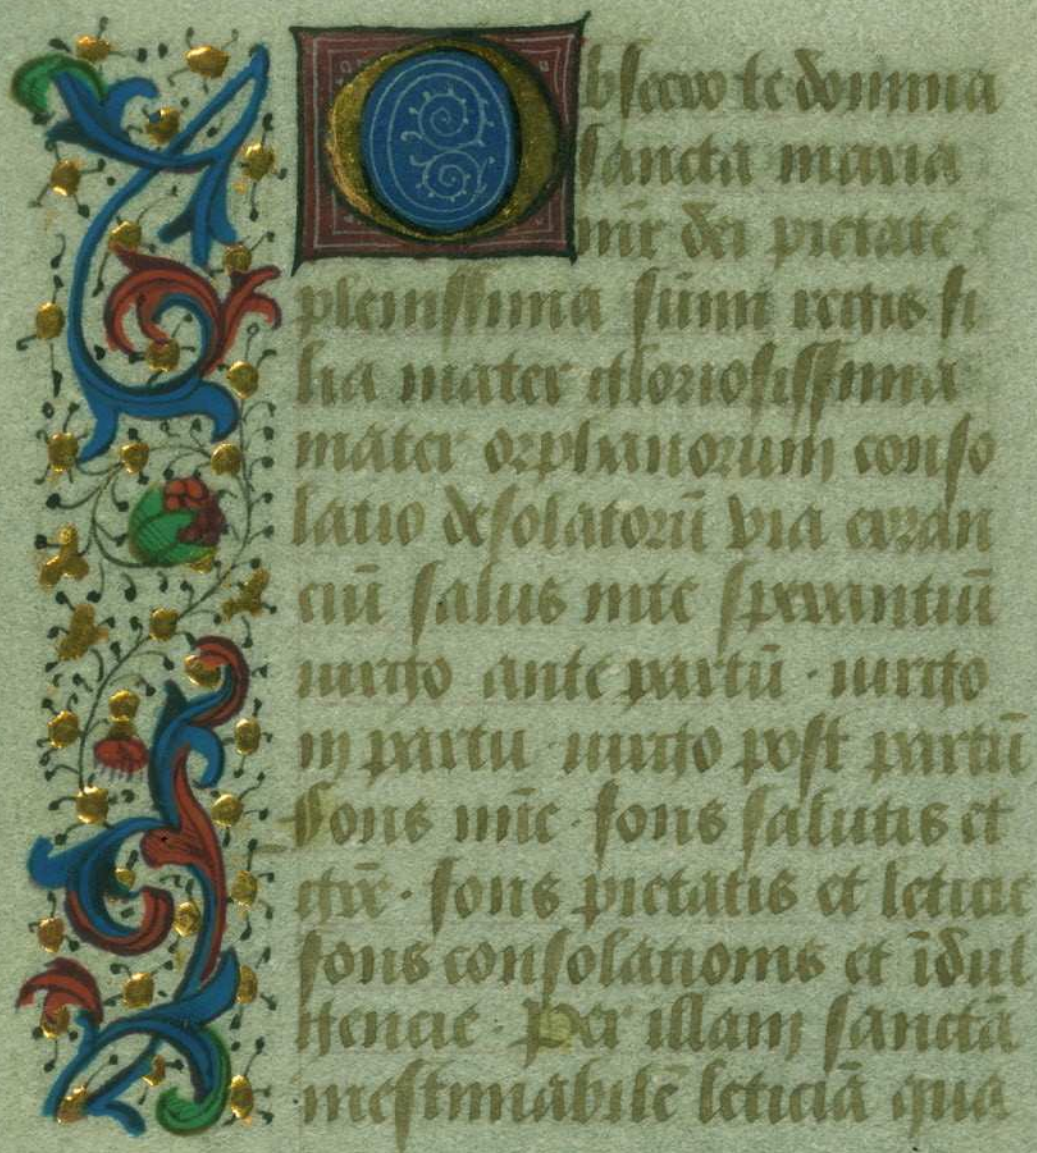 Obsecro te domina
sancta maria
mr̄ dei pietate
plenissima sūmi regis fi
lia mater gloriosissima
mater orphanorum conso
latio desolatorū via erran
ciū salus īnte sperantiū
uirgo ante partū · uirgo
in partu uirgo post partū
fons mīe · fons salutis et
grīe · fons pietatis et leticie
fons consolationis et īdul
gencie · Per illam sanctā
inestimabilē leticiā qua